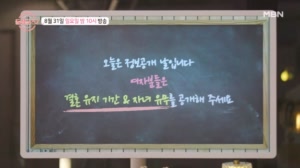 8월 21일 일요일 밤 10시 방송
MBN
오늘은 정보공개 날입니다
여자분들은
결혼 유지 기간 & 자녀 유무를 공개해 주세요